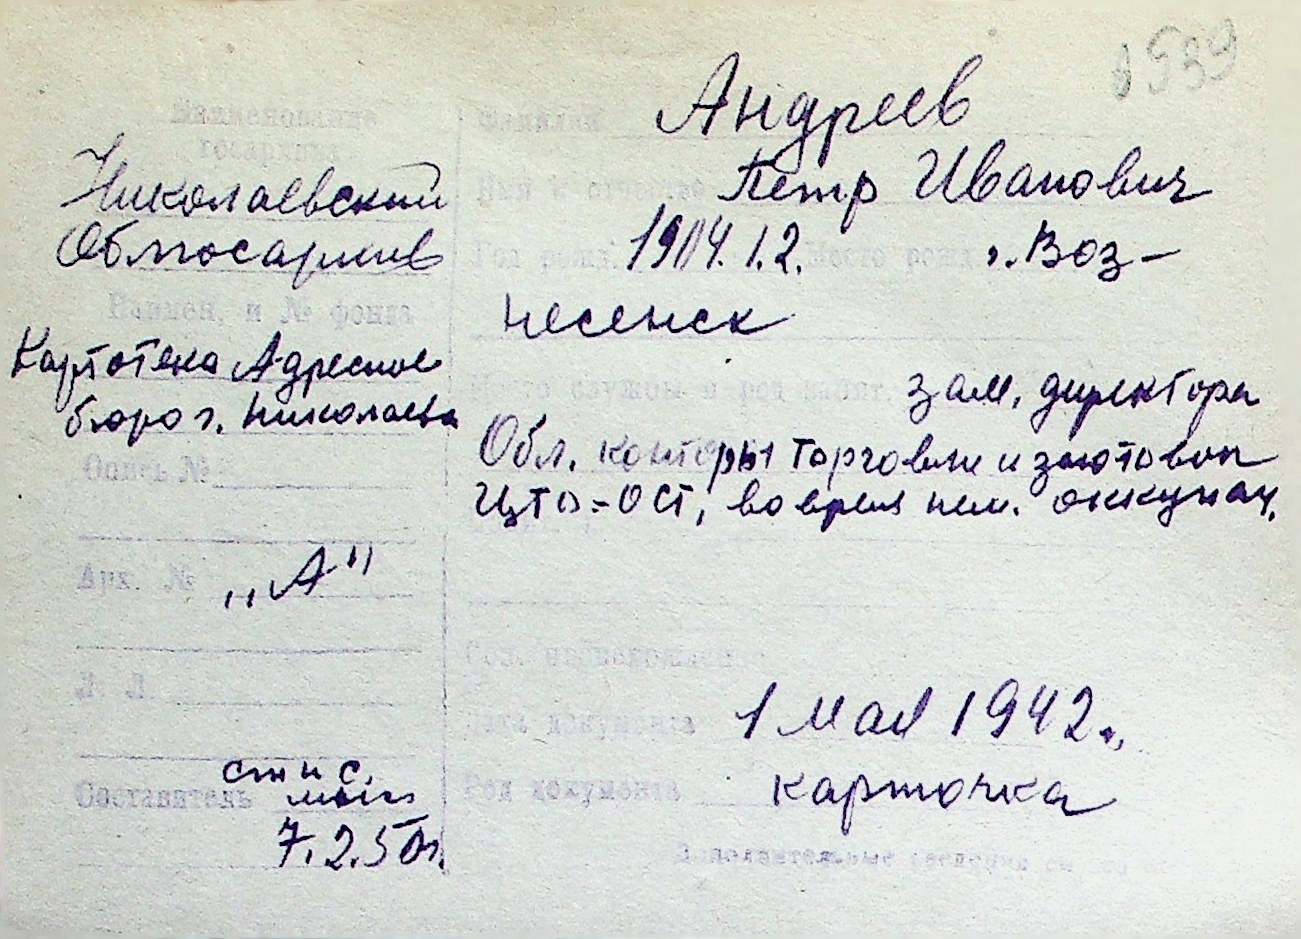 539
Наименование
госархива
Николаевский
Облгосархив
Наимен. и № фонда
Картотека Адресное
бюро г. Николаева
Опись №
Арх. № „А"
Л. Л.
Составитель
7.2.50г.
Фамилия Андреев
Имя и отчество Петр Иванович
Год рожд. 1904.1.2. Место рожд. г. Воз-
несенск
Место службы и род занят. зам. директора
Обл. конторы торговли и заготовок
ЦТО-ОСТ, во время нем. оккупац.
Соц. происхождение
Дата документа 1 мая 1942г.
Род документа карточка
Дополнительные сведения см. на